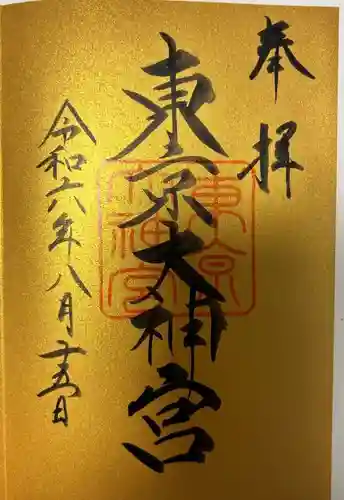 奉拝
東京大神宮
東京大神宮
令和六年八月十五日